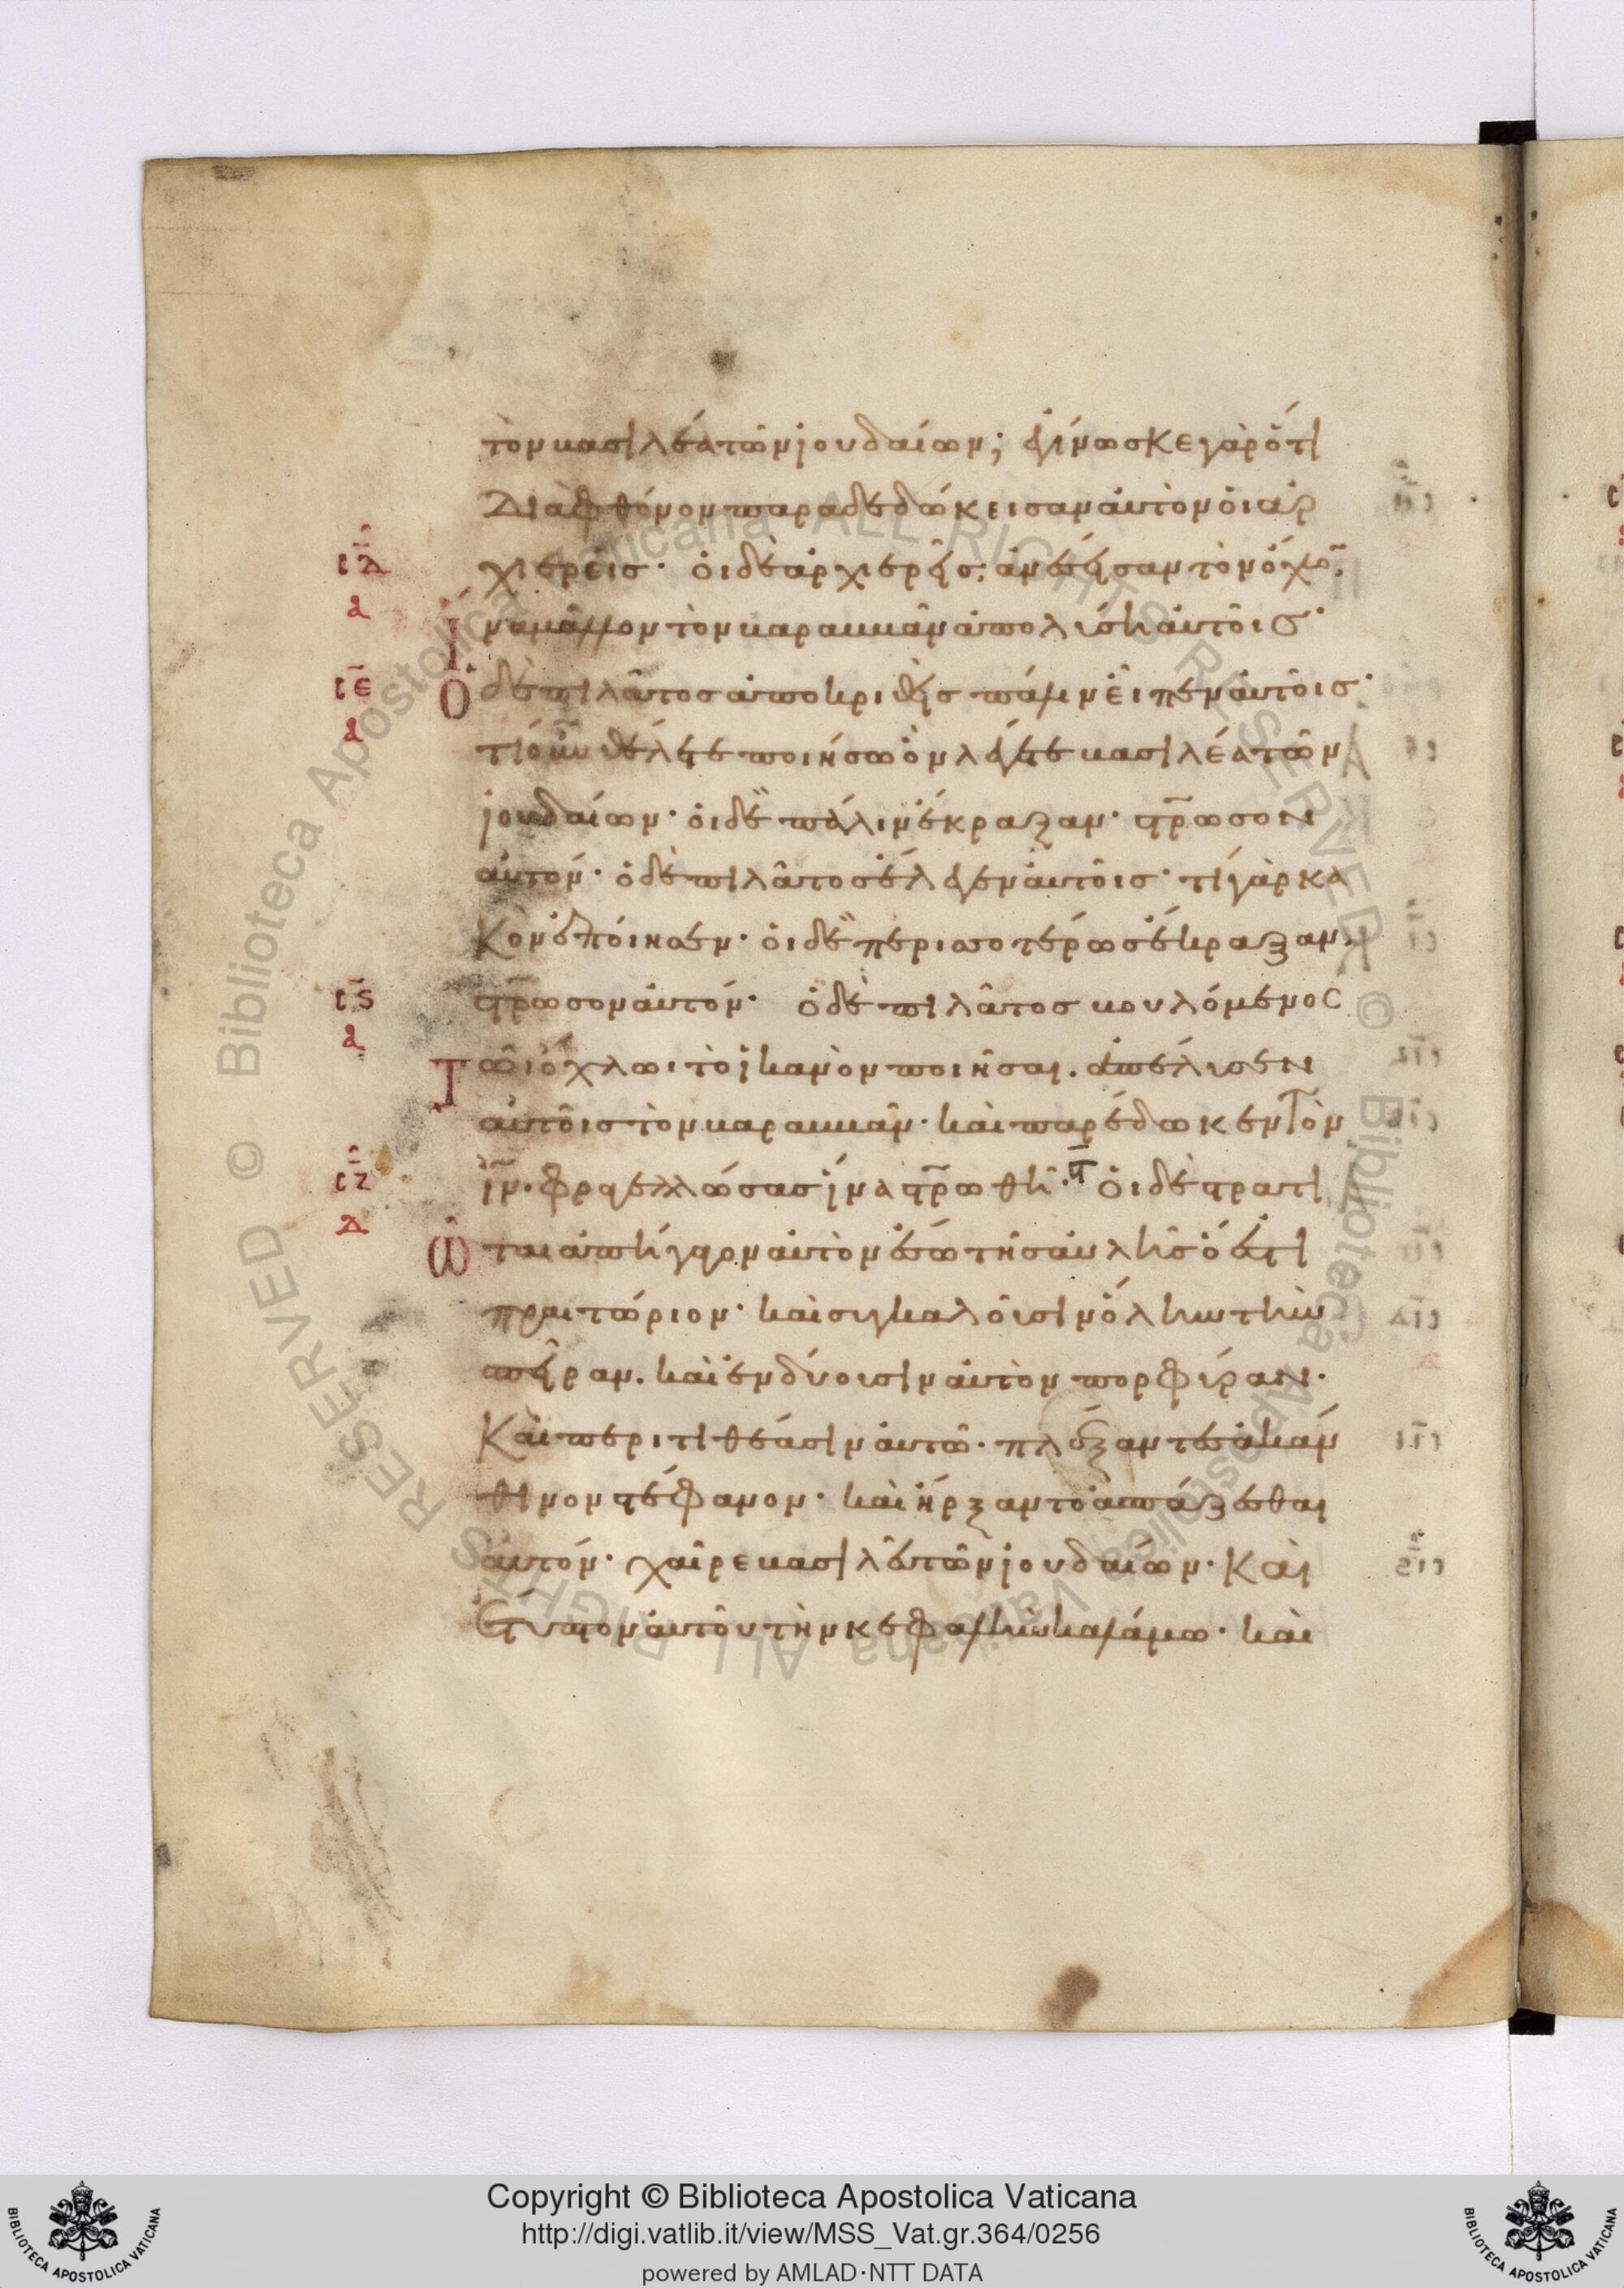 τὸν βασιλέα τῶν ἰουδαίων; ἐγίνωσκε γὰρ ὅτι
διὰ φθόνον παραδεδώκεισαν αὐτὸν οἱ ἀρ
σιδ χιερεῖς· οἱ δὲ ἀρχιερεῖς ἀνέσεισαν τὸν ὄχλο̅,
α ἵνα μᾶλλον τὸν βαραββᾶν ἀπολύσῃ αὐτοῖς·
σιε Ὁ δὲ πιλᾶτος ἀποκριθεὶς πάλιν εἶπεν αὐτοῖς·
α τί οὖν θέλετε ποιήσω ὃν λέγετε βασιλέα τῶν
ἰουδαίων· οἱ δὲ πάλιν ἔκραξαν· στ̅ρωσον
αὐτόν· ὁ δὲ πιλᾶτος ἔλεγεν αὐτοῖς· τί γὰρ κα
κὸν ἐποίησεν· οἱ δὲ περισσοτέρως ἔκραξαν,
σις στ̅ρωσον αὐτόν· ὁ δὲ πιλᾶτος βουλόμενος
α Τῶι ὄχλωι τὸ ἱκανὸν ποιῆσαι. ἀπέλυσεν
αὐτοῖς τὸν βαραββᾶν· καὶ παρέδωκεν τὸν
σιζ ι̅ν· φραγελλώσας ἵνα στ̅ρωθῆ· οἱ δὲ στρατι
δ Ὦται ἀπήγαγον αὐτὸν ἔσω τῆς αὐλῆς ὅ ἐστι
πραιτώριον· καὶ συγκαλοῦσιν ὅλην τὴν
σπεῖραν. καὶ ἐνδύουσιν αὐτὸν πορφύραν·
Καὶ περιτιθέασιν αὐτῶ· πλέξαντες ἀκάν
θινον στέφανον· καὶ ἤρξαντο ἀσπάζεσθαι
αὐτόν· χαῖρε βασιλεῦ τῶν ἰουδαίων· Καὶ
Ἔτυπτον αὐτοῦ τὴν κεφαλὴν καλάμω· καὶ
Copyright © Biblioteca Apostolica Vaticana
http://digi.vatlib.it/view/MSS_Vat.gr.364/0256
powered by AMLAD·NTT DATA